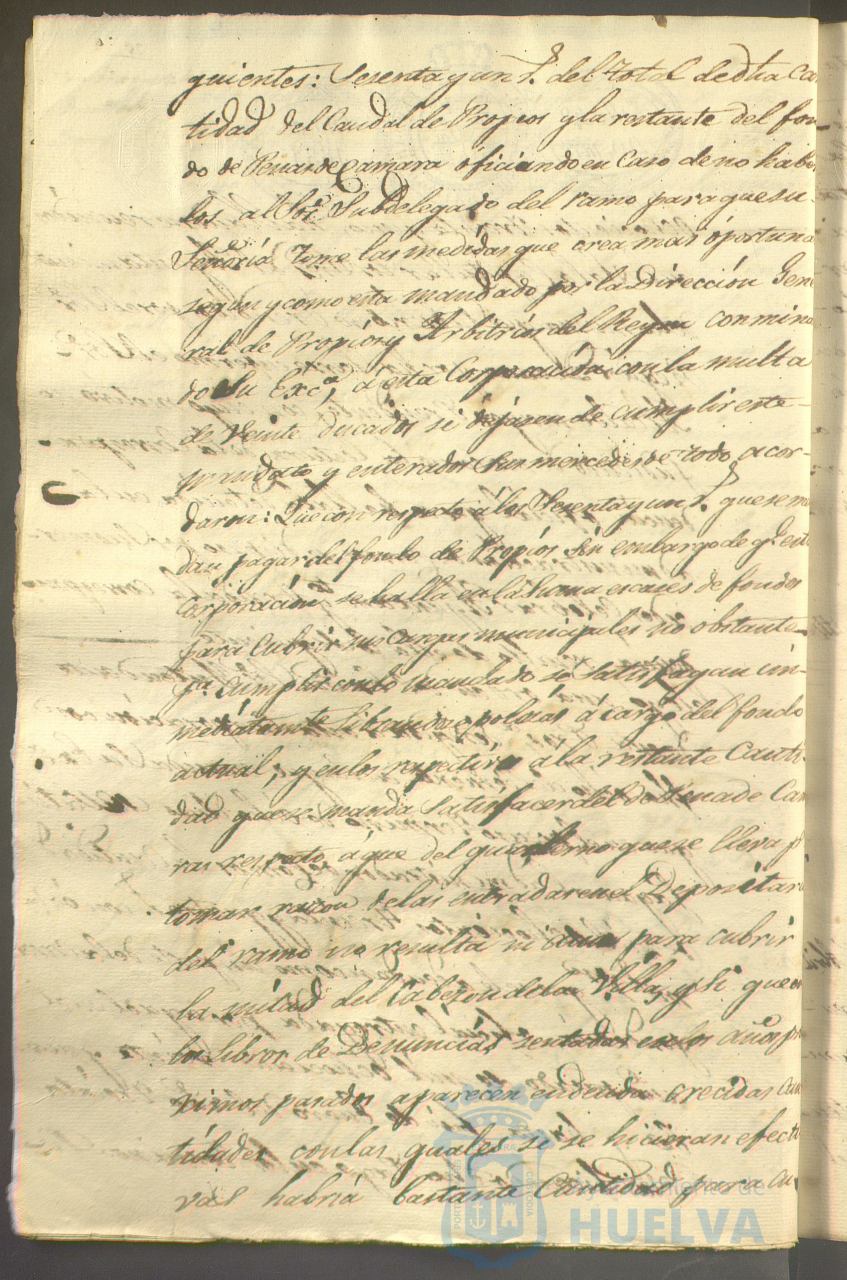 guientes: Sesenta y un r.s del total de dha Ca
tidad del Caudal de Propios y la restante del fon-
do de Penas de Camara oficiando en caso de no haber
los al Sor. Subdelegado del ramo para que su
Señoría tome las medidas que crea mas oportuna
segun y como esta mandado por la Dirección Gene
ral de Propios y Arbitrios del Reyno conminan
do Su Exc.a, a esta Corporación con la multa
de Veinte ducados si dejasen de cumplir este
mandato y enterados Sus mercedes de todo acor-
daron: Que con respeto á los Sesenta y un r.s que se man
dan pagar del fondo de Propios sin embargo de q.e esta
Corporación se halla en la Suma escases de fondos
para cubrir sus cargas municipales no obstante
p.a cumplir con lo mandado se satisfagan in-
mediatamte librandose polesas á cargo del fondo
actual, y en los respectivo a la restante Canti-
dad que se manda satisfacer del de Penas de Cam
ras respeto, á que del quaderno que se lleva p
tomar razon de las entradas en el Depositari
del ramo no resulta ni aun para cubrir
la mitad del Cabeson de la Villa, y si que en
los Libros de Denuncias sentadas en los años pro
ximos pasados aparecen en deuda crecidas can
tidades con las quales si se hicieran efecti
vas habria bastante Cantidad para cu
Ayuntamiento de
HUELVA